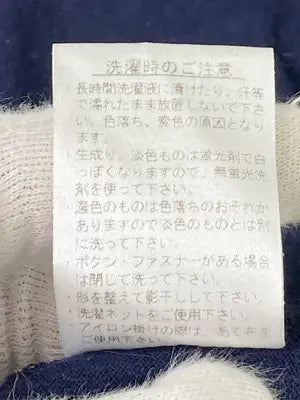 洗濯時のご注意
・長時間洗濯液に漬けたり、汗等
で濡れたまま放置しないで下さ
い。色落ち、変色の原因となり
ます。
・生成り、淡色ものは蛍光剤で白
っぽくなりますので、無蛍光洗
剤を使って下さい。
・濃色のものは色落ちのおそれが
ありますので淡色のものとは別
に洗って下さい。
・ボタン・ファスナーがある場合
は閉じて洗って下さい。
・形を整えて陰干しして下さい。
・洗濯ネットをご使用下さい。
・アイロン掛けの際は、あて布を
ご使用下さい。